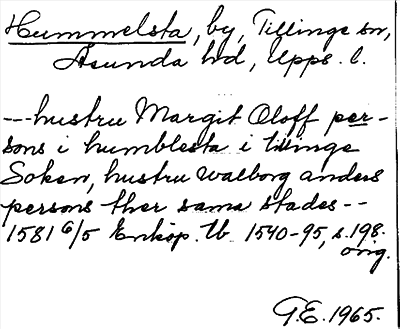 Hummelsta, by, Tillinge sn,
Åsunda hd, Upps. l.
-- hustru Margit Oloff per-
sons i humblesta i tillinge
Soken, hustru walborg anders
persons ther sama stades --
1581 6/5 Enköp. tb 1540-95, s. 198.
orig.
G.E. 1965.